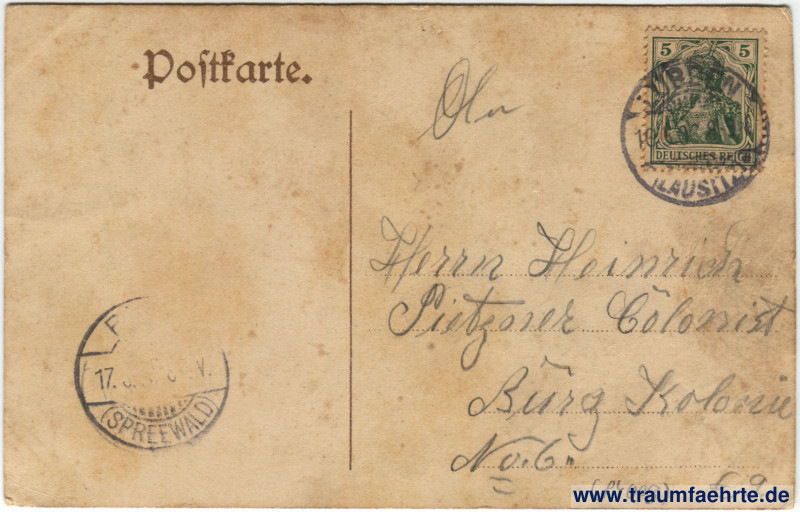 Postkarte.
An
5 5
DEUTSCHES REICH
LÜBBEN
(LAUSITZ)
Herrn Heinrich
Pietzner Colonist
Burg Kolonie
No. 6.
17.
V.
(SPREEWALD)
www.traumfaehrte.de